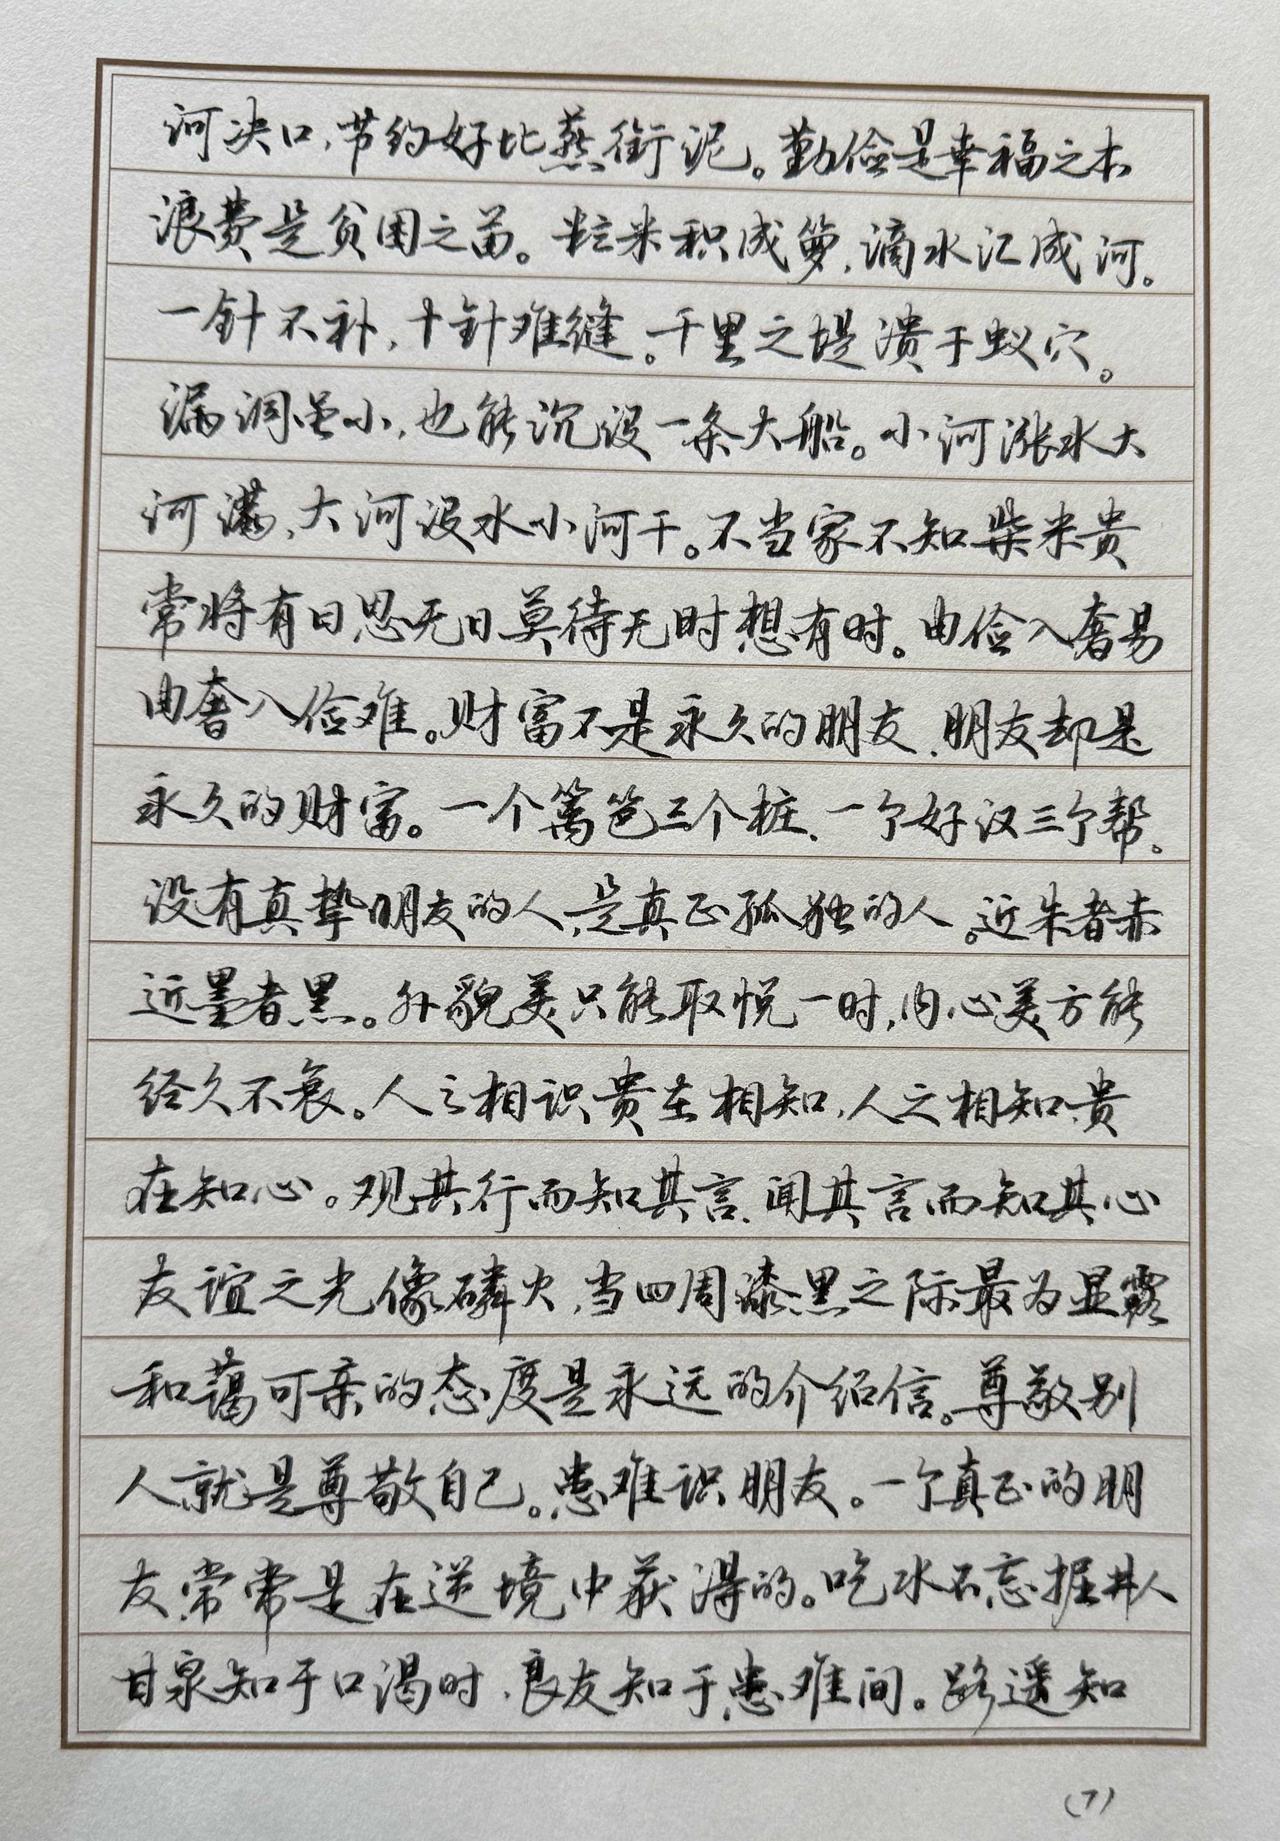 河决口，节约好比燕衔泥。勤俭是幸福之本
浪费是贫困之苗。粒米积成箩，滴水汇成河。
一针不补，十针难缝。千里之堤溃于蚁穴。
漏洞虽小，也能沉没一条大船。小河涨水大
河满，大河没水小河干。不当家不知柴米贵
常将有日思无日莫待无时想有时。由俭入奢易
由奢入俭难。财富不是永久的朋友、朋友却是
永久的财富。一个篱笆三个桩、一个好汉三个帮。
没有真挚朋友的人，是真正孤独的人。近朱者赤
近墨者黑。外貌美只能取悦一时，内心美方能
经久不衰。人之相识贵在相知，人之相知，贵
在知心。观其行而知其言、闻其言而知其心
友谊之光像磷火，当四周漆黑之际最为显露
和蔼可亲的态度是永远的介绍信。尊敬别
人，就是尊敬自己。患难识朋友。一个真正的朋
友，常常是在逆境中获得的。吃水不忘掘井人
甘泉知于口渴时，良友知于患难间。路遥知
(7)